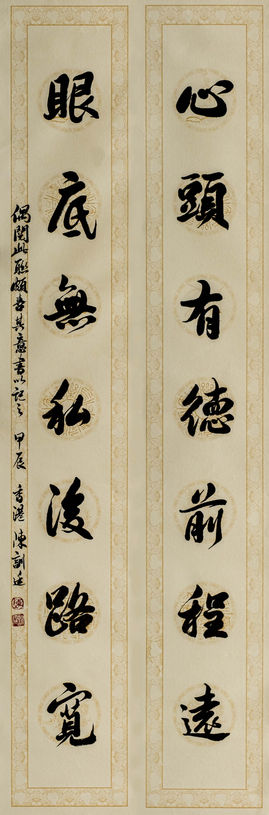 心頭有德前程遠
眼底無私後路寬
偶閱此聯頗喜其意書以記之 甲辰 香港 陳釗廷